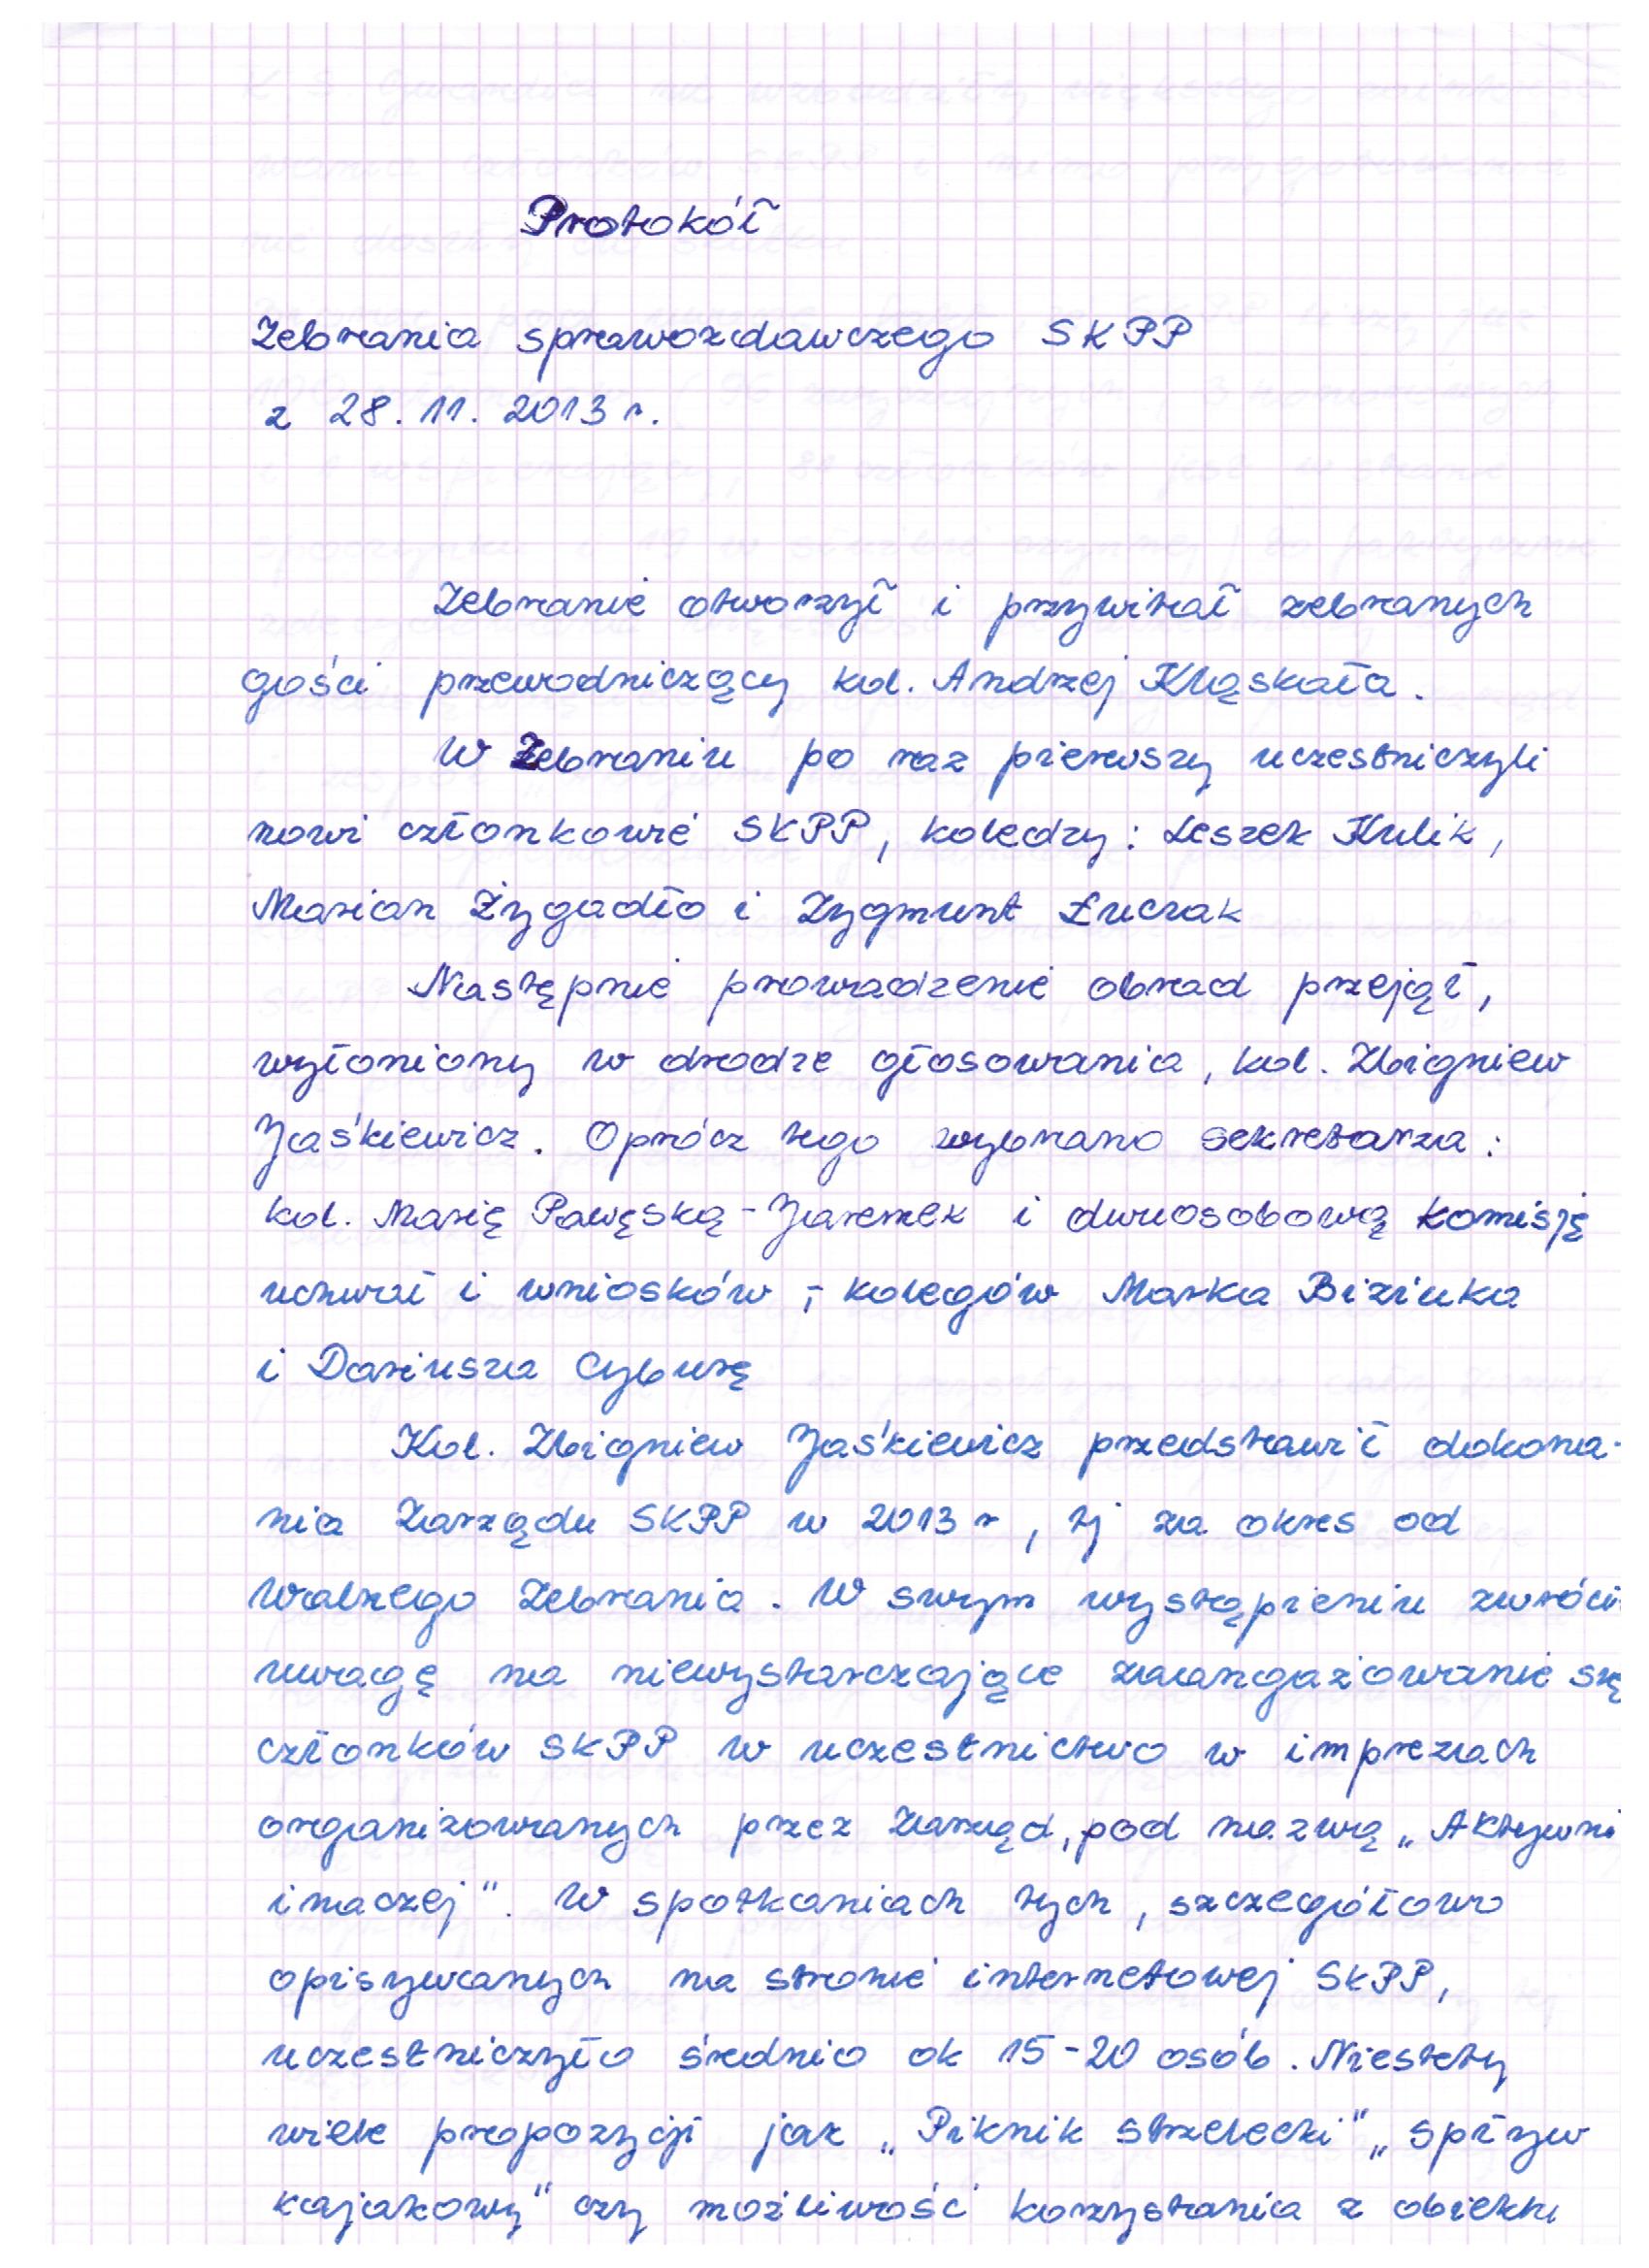 Protokół
Zebrania sprawozdawczego SKPP
z 28.11.2013 r.
Zebranie otworzył i przywitał zebranych
gości przewodniczący kol. Andrzej Kląskała.
W Zebraniu po raz pierwszy uczestniczyli
nowi członkowie SKPP, koledzy: Leszek Kulik,
Marian Żygadło i Zygmunt Łuczak
Następnie prowadzenie obrad przejął,
wyłoniony w drodze głosowania, kol. Zbigniew
Jaśkiewicz. Oprócz tego wybrano sekretarza:
kol. Marię Pawęską-Jaremek i dwuosobową komisję
uchwał i wniosków - kolegów Marka Biziuka
i Dariusza Cyburę
Kol. Zbigniew Jaśkiewicz przedstawił dokona-
nia Zarządu SKPP w 2013 r, tj za okres od
Walnego Zebrania. W swym wystąpieniu zwrócił
uwagę na niewystarczające zaangażowanie się
członków SKPP w uczestnictwo w imprezach
organizowanych przez Zarząd, pod nazwą „Aktywni
inaczej". W spotkaniach tych, szczegółowo
opisywanych na stronie internetowej SKPP,
uczestniczyło średnio ok 15-20 osób. Niestety
wiele propozycji jak „Piknik strzelecki" „spływ
kajakowy" czy możliwość korzystania z obiektu